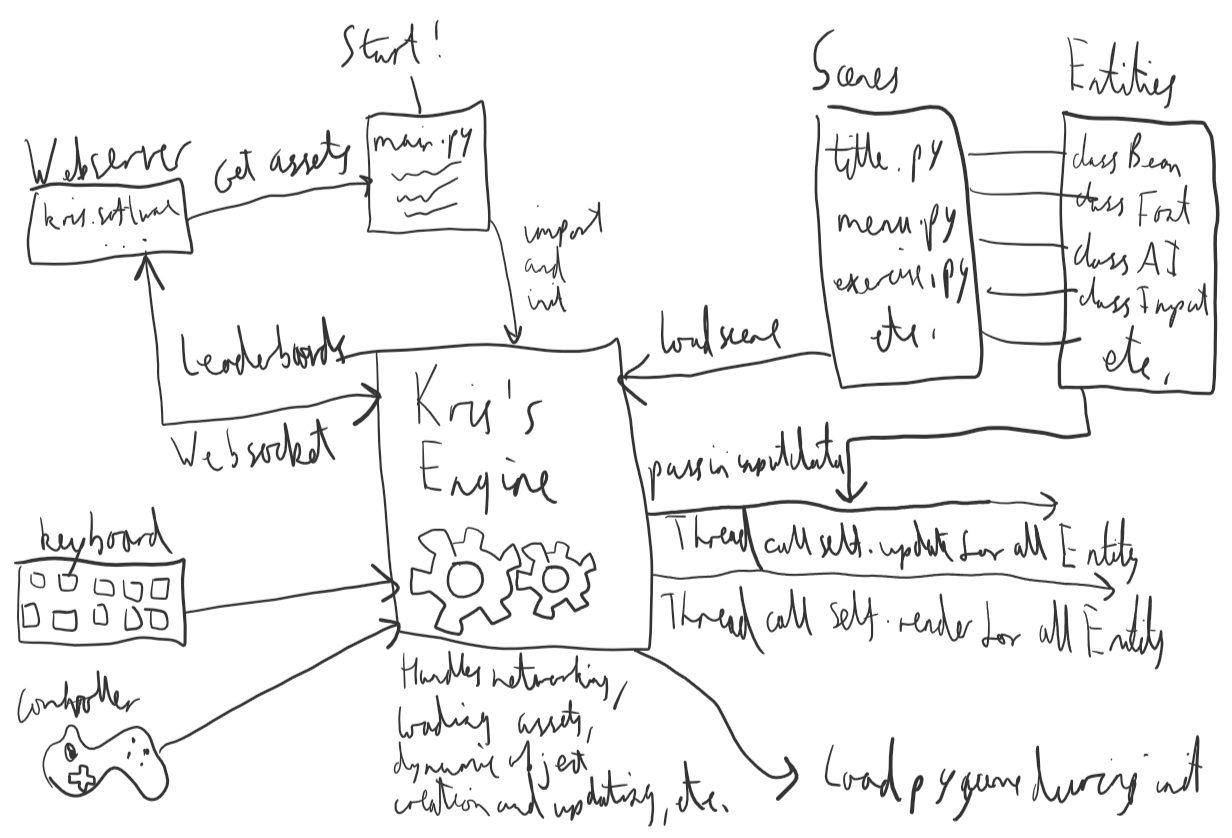 Start!
main.py
Webserver
kris.software
...
Get assets
import
and
init
Scenes
title.py
menu.py
exercise.py
etc.
Entities
class Bean
class Font
class AI
class Input
etc.
Leaderboards
Websocket
Load scene
Kris's
Engine
pass in input data
Thread call self.update for all Entity
Thread call self.render for all Entity
keyboard
controller
Handles networking,
loading assets,
dynamic object
creation and updating, etc.
Load pygame during init